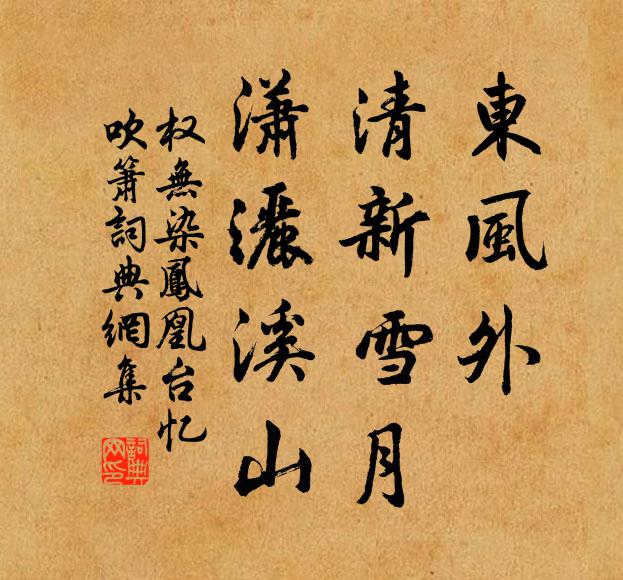 東風外
清新雪月
瀟灑溪山
权無染鳳凰台忆
吹簫詞典網集
詞典网印